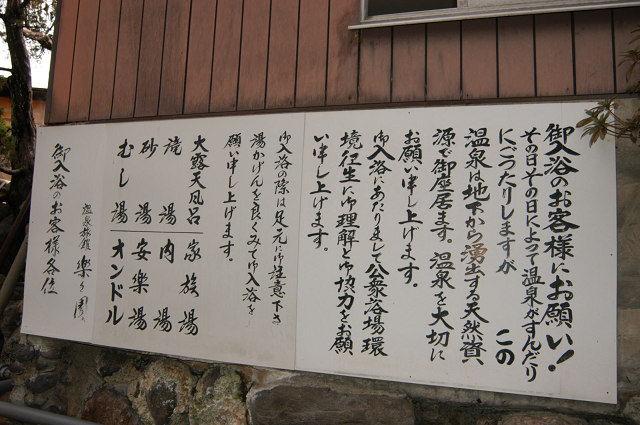 御入浴のお客様にお願い！
その日その日によって温泉がすんだり
にごったりしますが　この
温泉は地下から湧出する天然資
源で御座居ます。温泉を大切に
お願い申し上げます。
御入浴にあたりまして公衆浴場環
境衛生に御理解と御協力をお願
い申し上げます。
御入浴の際は足元に御注意下さ
湯かげんを良くみて御入浴を
願い申し上げます。
大露天風呂　家族湯
滝湯　内湯
砂湯　安楽湯
むし湯　オンドル
温泉旅館　楽々園
御入浴のお客様各位